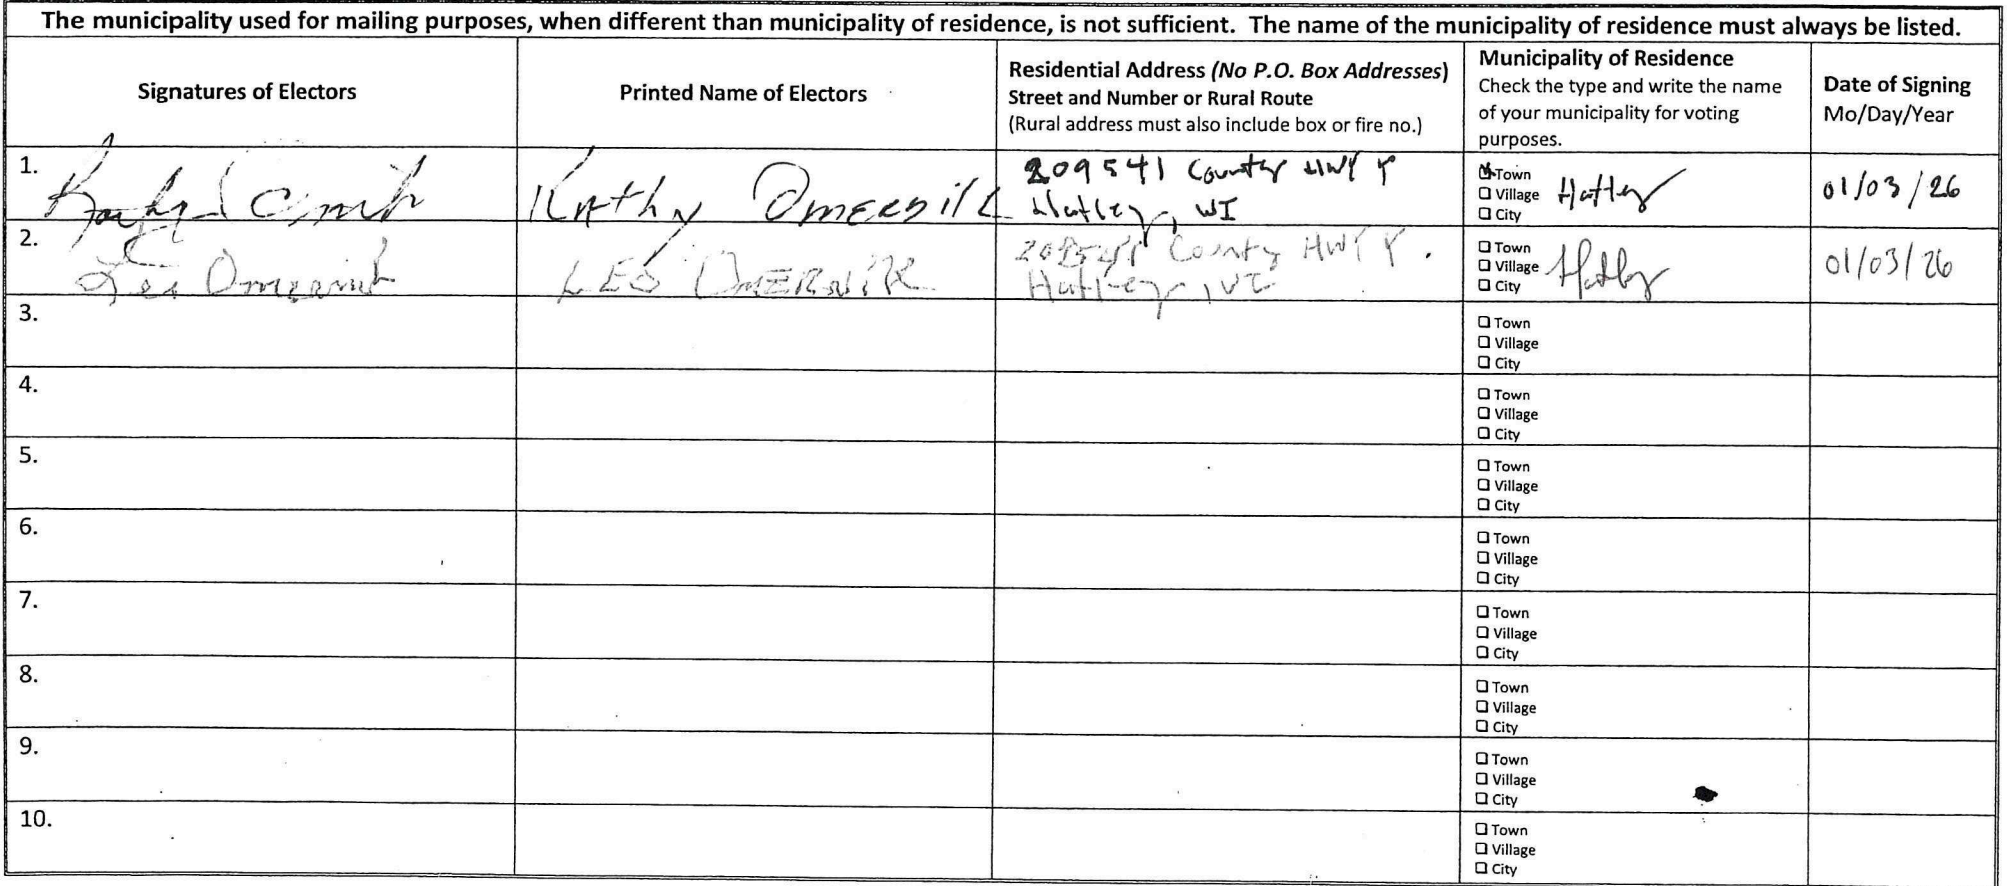 The municipality used for mailing purposes, when different than municipality of residence, is not sufficient. The name of the municipality of residence must always be listed.
Signatures of Electors
Printed Name of Electors
Residential Address (No P.O. Box Addresses)
Street and Number or Rural Route
(Rural address must also include box or fire no.)
Municipality of Residence
Check the type and write the name
of your municipality for voting
purposes.
Date of Signing
Mo/Day/Year
1.
Kathy Omernik
209541 County HWY Y
Hatley, WI
Town
Village
City
Hatley
01/03/26
2.
Leo Omernik
LEO OMERNIK
County HWY Y.
Hatley, WI
Town
Village
City
Hatley
01/03/26
3.
Town
Village
City
4.
Town
Village
City
5.
Town
Village
City
6.
Town
Village
City
7.
Town
Village
City
8.
Town
Village
City
9.
Town
Village
City
10.
Town
Village
City